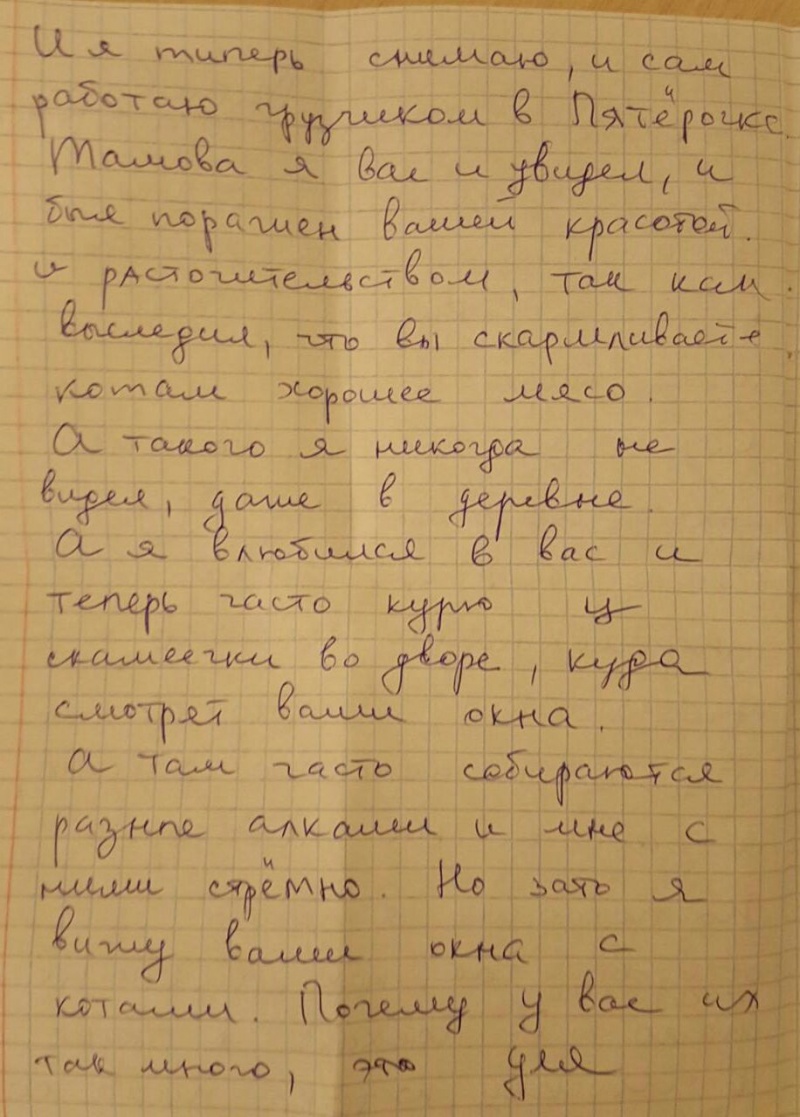 И я типерь снимаю, и сам
работаю грузчиком в Пятёрочке.
Тамова я вас и увидел, и
был поражен вашей красотой.
и расточительством, так как
выследил, что вы скармливаете
котам хорошее мясо.
А такого я никогда не
видел, даже в деревне.
А я влюбился в вас и
теперь часто курю у
скамеечки во дворе, куда
смотрят ваши окна.
А там часто собираются
разные алкаши и мне с
ними стрёмно. Но зать я
вижу ваши окна с
котами. Почему у вас их
так много, это для